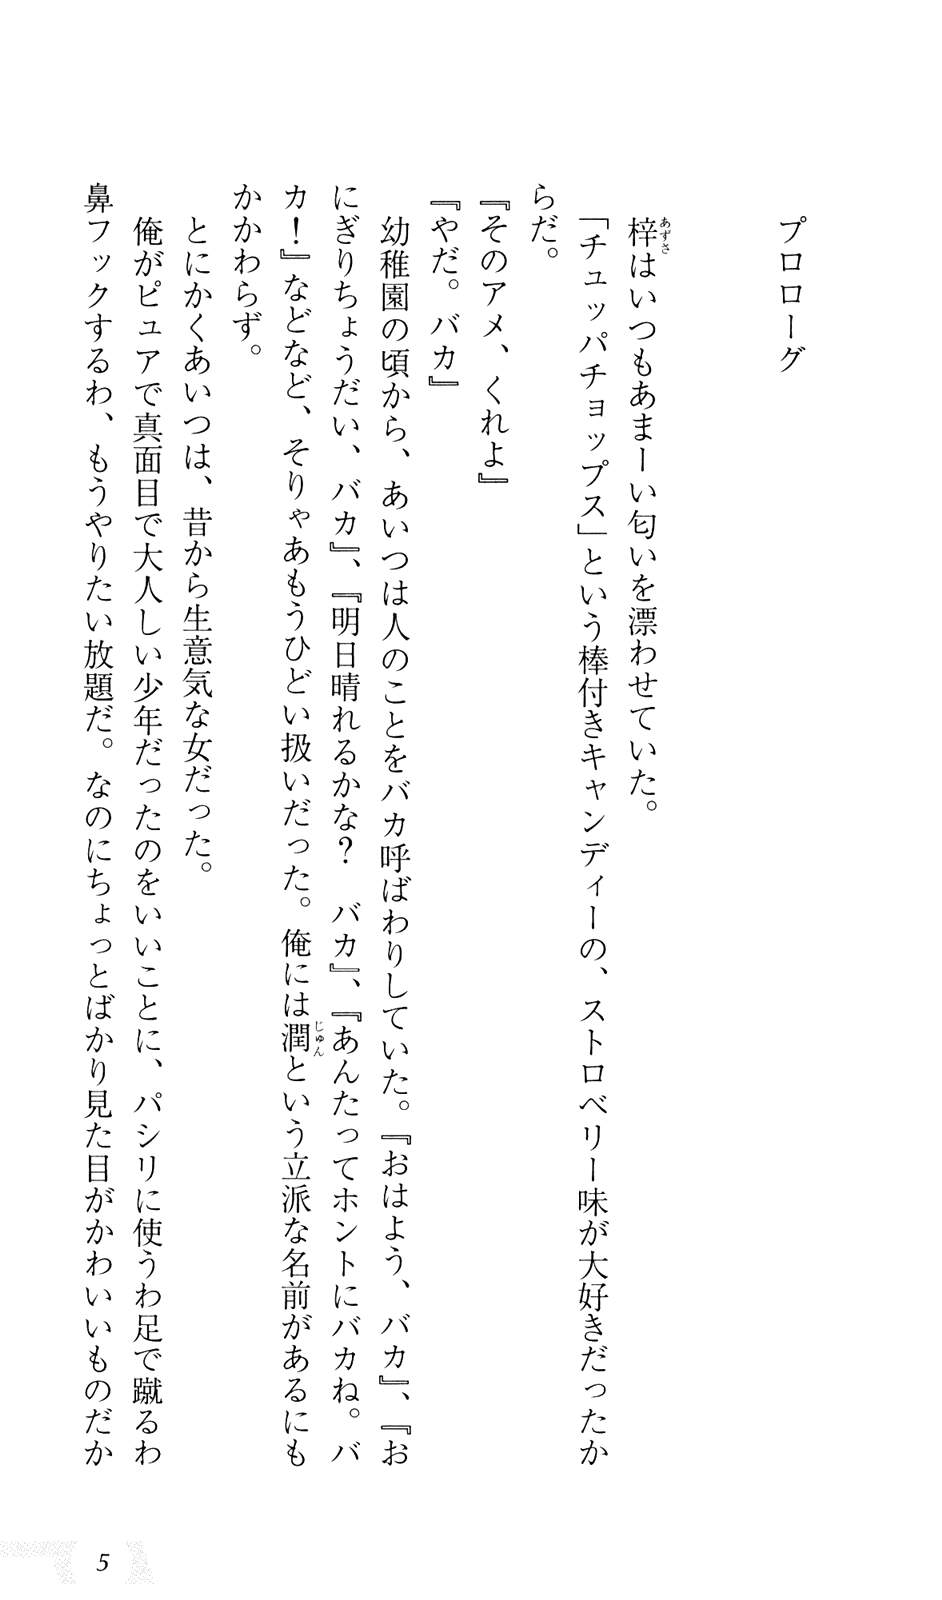 プロローグ
梓はいつもあまーい匂いを漂わせていた。
あずさ
「チュッパチョップス」という棒付きキャンディーの、ストロベリー味が大好きだったか
らだ。
『そのアメ、くれよ』
『やだ。バカ』
幼稚園の頃から、あいつは人のことをバカ呼ばわりしていた。『おはよう、バカ』、『お
にぎりちょうだい、バカ』、『明日晴れるかな?　バカ』、『あんたってホントにバカね。バ
カ!』などなど、そりゃあもうひどい扱いだった。俺には潤という立派な名前があるにも
じゅん
かかわらず。
とにかくあいつは、昔から生意気な女だった。
俺がピュアで真面目で大人しい少年だったのをいいことに、パシリに使うわ足で蹴るわ
鼻フックするわ、もうやりたい放題だ。なのにちょっとばかり見た目がかわいいものだか
5